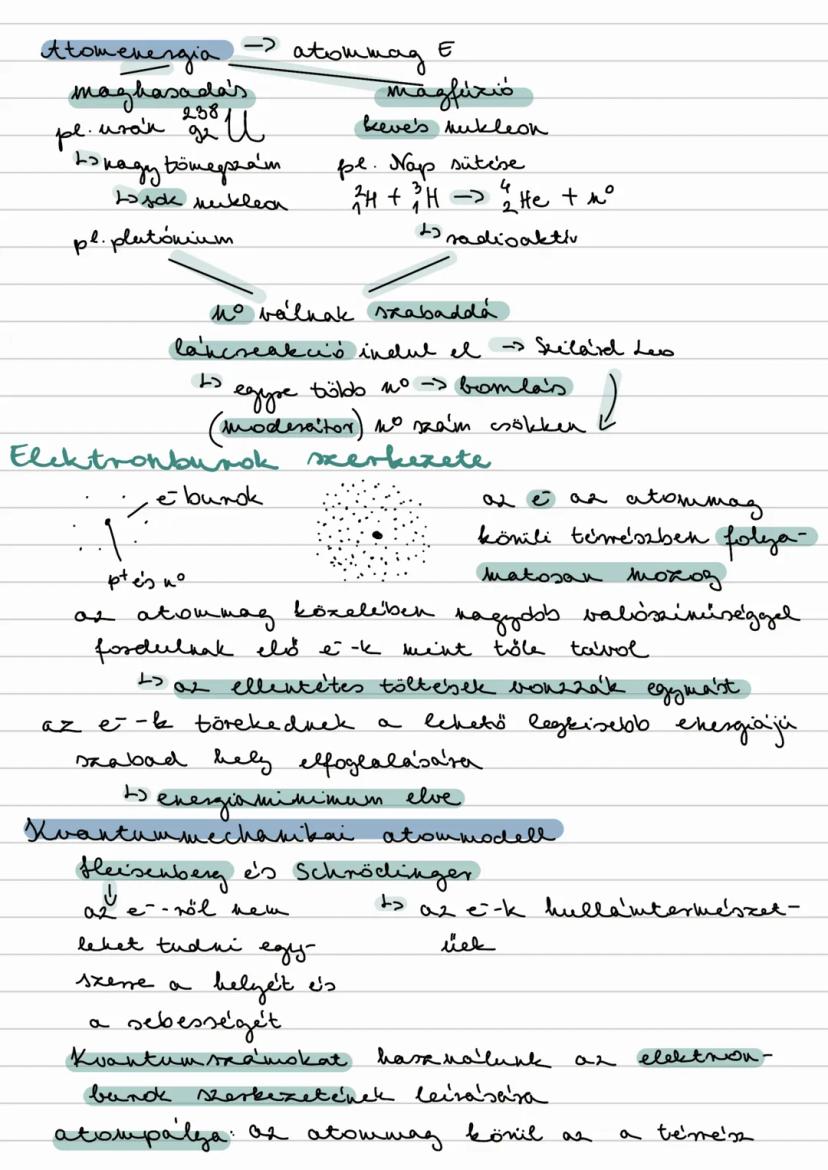 Atomenergia -> atommag E
maghasadás magfúzió
pl. urán ²³⁸₉₂U kevés nukleon
↳ nagy tömegszám pl. Nap sütése
↳ sok nukleon ²₁H + ³₁H -> ⁴₂He + n⁰
pl. plutónium ↳ radioaktív
n⁰ válnak szabaddá
láncreakció indul el -> Szilárd Leo
↳ egyre több n⁰ -> bomlás
(moderátor) n⁰ szám csökken
Elektronburok szerkezete
e⁻ burok az e⁻ az atommag
körüli térrészben folya-
p⁺ és n⁰ matosan mozog
az atommag közelében nagyobb valószínűséggel
fordulnak elő e⁻-k mint tőle távol
↳ az ellentétes töltések vonzzák egymást
az e⁻-k törekednek a lehető legkisebb energiájú
szabad hely elfoglalására
↳ energiaminimum elve
Kvantummechanikai atommodell
Heisenberg és Schrödinger
az e⁻-ről nem ↳ az e⁻-k hullámtermészet-
lehet tudni egy- űek
szerre a helyét és
a sebességét
Kvantumszámokat használunk az elektron-
burok szerkezetének leírására
atompálya: az atommag körül az a térrész